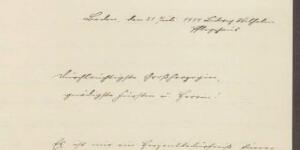 Baden, den 21 Juli 1919 Ludwig Wilhelm
pflegeheim
Durchlauchtigste Großherzogin,
gnädigste Fürstin u. Herrin!
Es ist mir ein Herzensbedürfnis